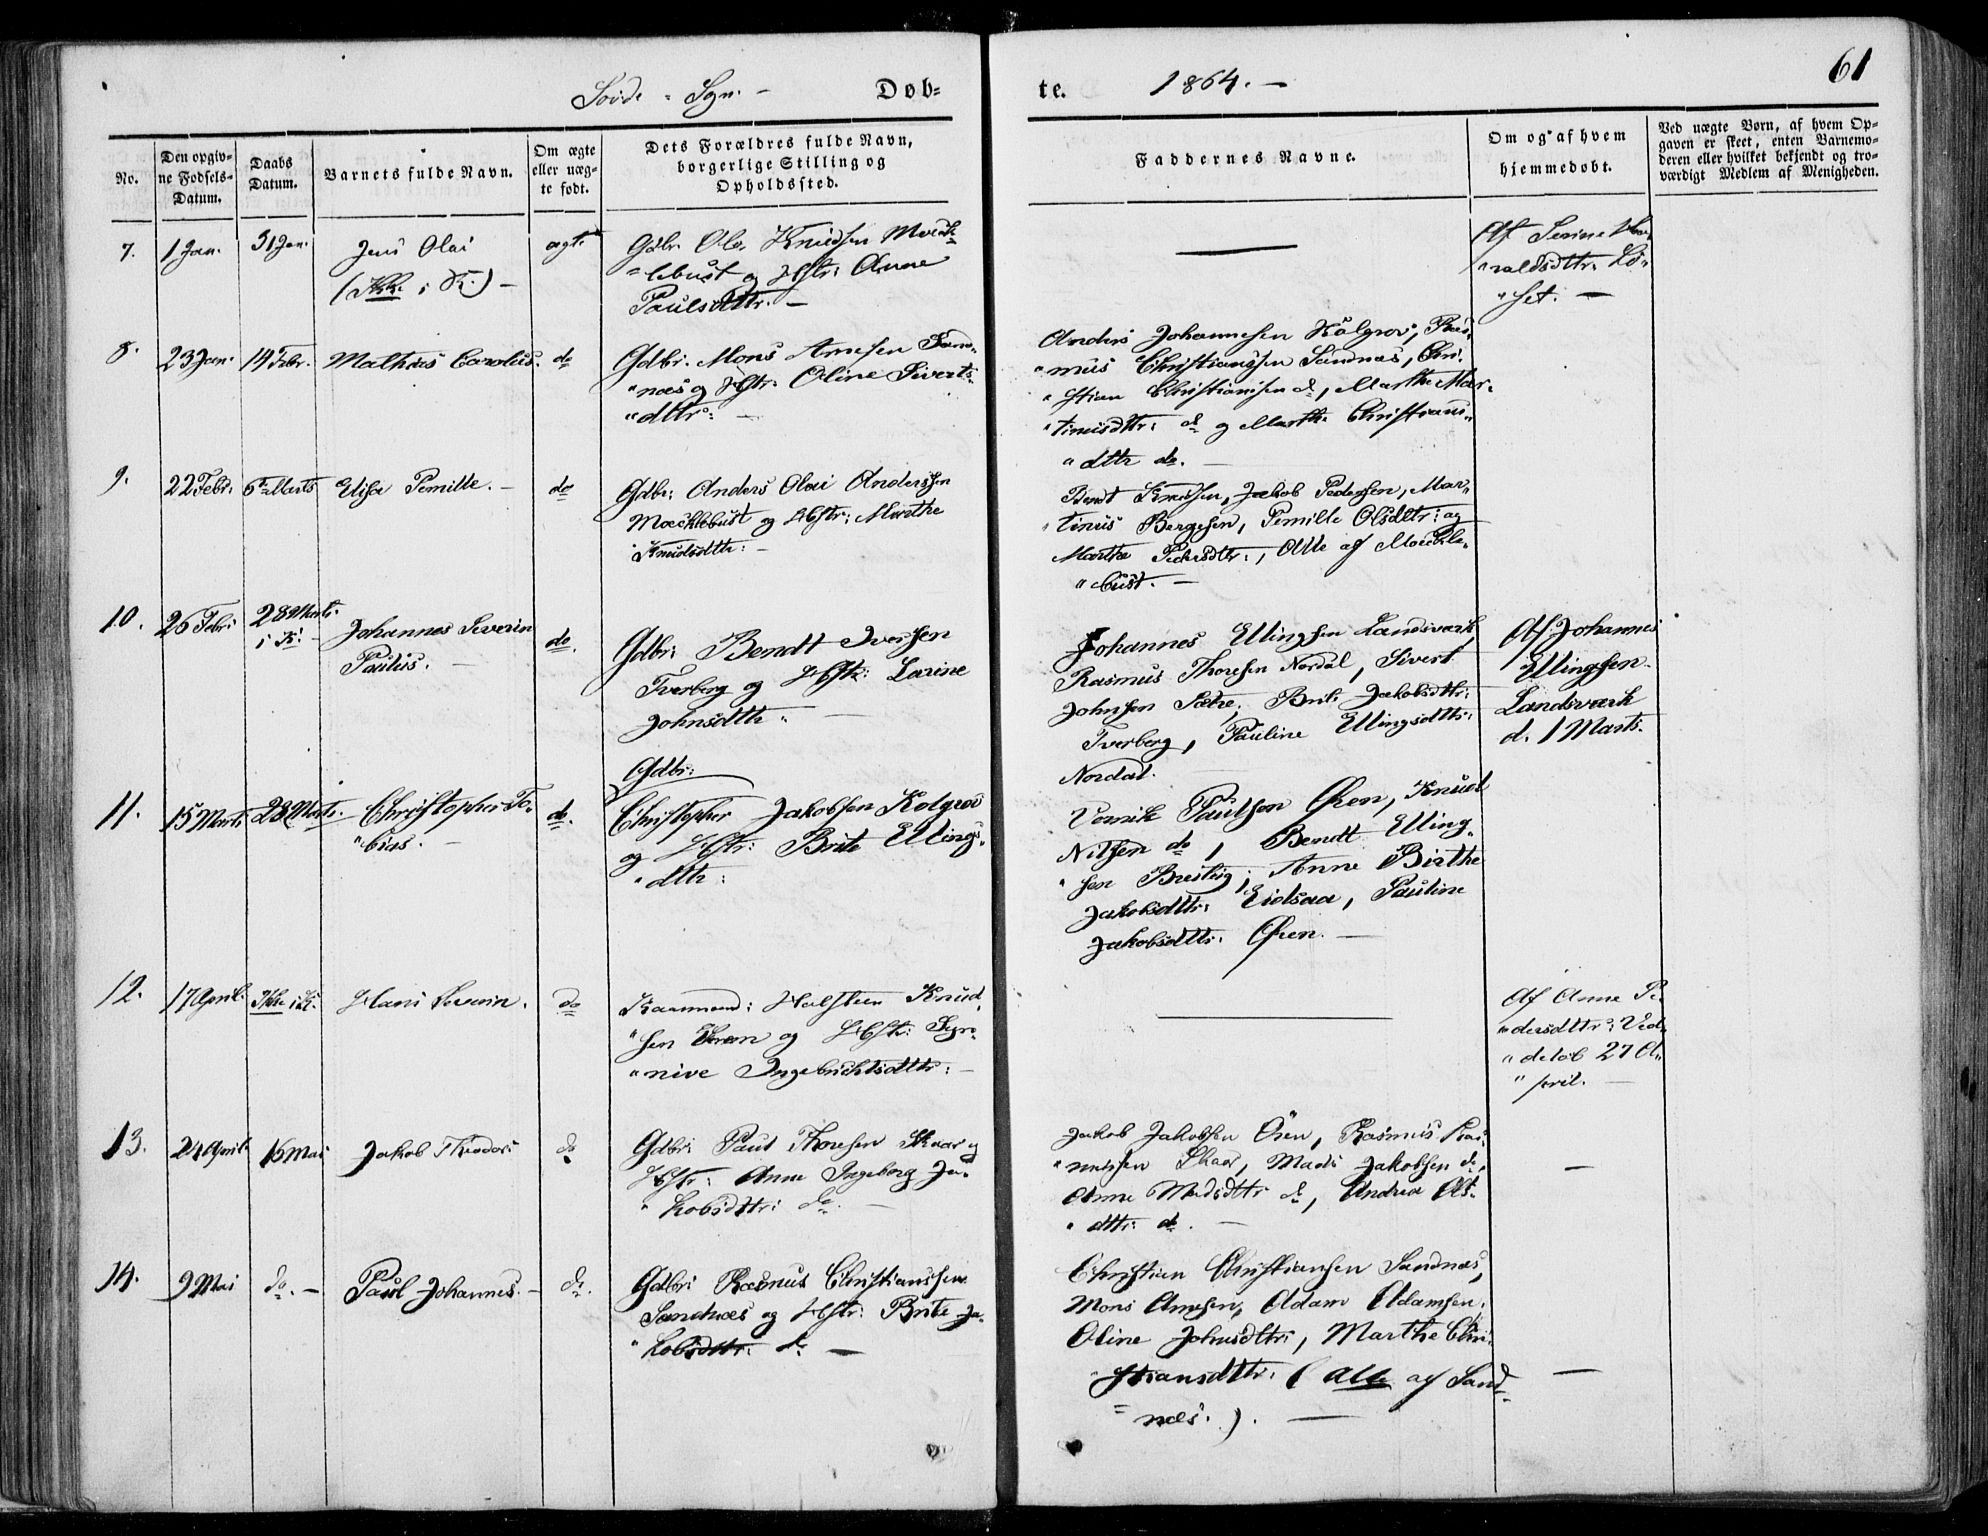 Søvde Sgn. – Døb=
te. 1864. – 61
No.
Den opgiv=
ne Fødsels=
Datum.
Daabs
Datum.
Barnets fulde Navn.
Om ægte
eller uæg=
te født.
Dets Forældres fulde Navn,
borgerlige Stilling og
Opholdssted.
Faddernes Navne.
Om og af hvem
hjemmedøbt.
Ved uægte Børn, af hvem Op=
gaven er skeet, enten Barnemo=
deren eller hvilket bekjendt og tro=
værdigt Medlem af Menigheden.
7. 1 Jan. 31 Jan. Jens Olai
(Ikke i K.) –
ægte
Gdbr. Ole Knudsen Moeck=
"lebust og Hstr: Anne
Paulsdttr. –
Af Serine
"raldsdttr: Lø"
"set. –
8. 23 Jan. 14 Febr. Mathias Carolus. do
Gdbr. Mons Arnesen Sand"
"næs og Hstr: Oline Siverts"
"dttr: –
Anders Johannesen Kolgrov, Ras"
"mus Christianssen Sandnæs, Chri"
"stian Christianssen do, Marthe Mar"
"tinusdttr: do og Marthe Christians"
"dttr do. –
9. 22 Febr. 6 Marts Elisa Pernille. – do
Gdbr: Anders Olai Anderssen
Moecklebust og Hstr: Marthe
Knudsdttr: –
Bendt Knudsen, Jakob Pedersen, Mar"
"tinus Bergesen, Pernille Olsdttr: og
Marthe Pedersdttr:, Alle af Moeckle"
"bust. –
10. 26 Febr. 28 Marts
i K. –
Johannes Severin
Paulus. –
do.
Gdbr: Bendt Iversen
Tverberg og Hstr: Larine
Johnsdttr. –
Johannes Ellingsen Landsværk,
Rasmus Thoresen Nordal, Sivert
Johnsen Sætre, Brite Jakobsdttr:
Tverberg, Pauline Ellingsdttr:
Nordal.
Af Johannes
Ellingsen
Landsværk
d. 1 Marts.
11. 15 Marts 28 Marts. Christopher To"
"bias. –
do.
Gdbr:
Christopher Jakobsen Kolgrov
og Hstr: Brite Ellings"
"dttr:
Paulsen Øren, Knud
Nilsen do, Bendt Elling"
"sen Breiteig, Anne Birthe
Jakobsdttr: Eidsaa, Pauline
Jakobsdttr: Øren. –
12. 17 April. Ikke i K. Hans Severin. do
Kaarmand: Halsteen Knud"
"sen Øren og Hstr: Syn"
"nive Ingebrichtsdttr: –
Af Anne Pe"
"dersdttr: Ved"
"deløb 27 A"
"pril. –
13. 24 April 16 Mai Jakob Theodor do
Gdbr: Paul Thoresen Skaar og
Hstr: Anne Ingeborg Ja"
"kobsdttr: do. –
Jakob Jakobsen Øren, Rasmus Ras"
"mussen Skaar, Mads Jakobsen do,
Anne Madsdttr do, Andrea Ols"
"dttr: do. –
14. 9 Mai do. – Paul Johannes. – do.
Gdbr: Rasmus Christianssen
Sandnæs og Hstr: Brite Ja"
"kobsdttr: do –
Christian Christiansen Sandnæs,
Mons Arnesen, Adam Adamsen,
Oline Johnsdttr:, Marthe Chri"
"stiansdttr: (Alle af Sand"
"næs.). –